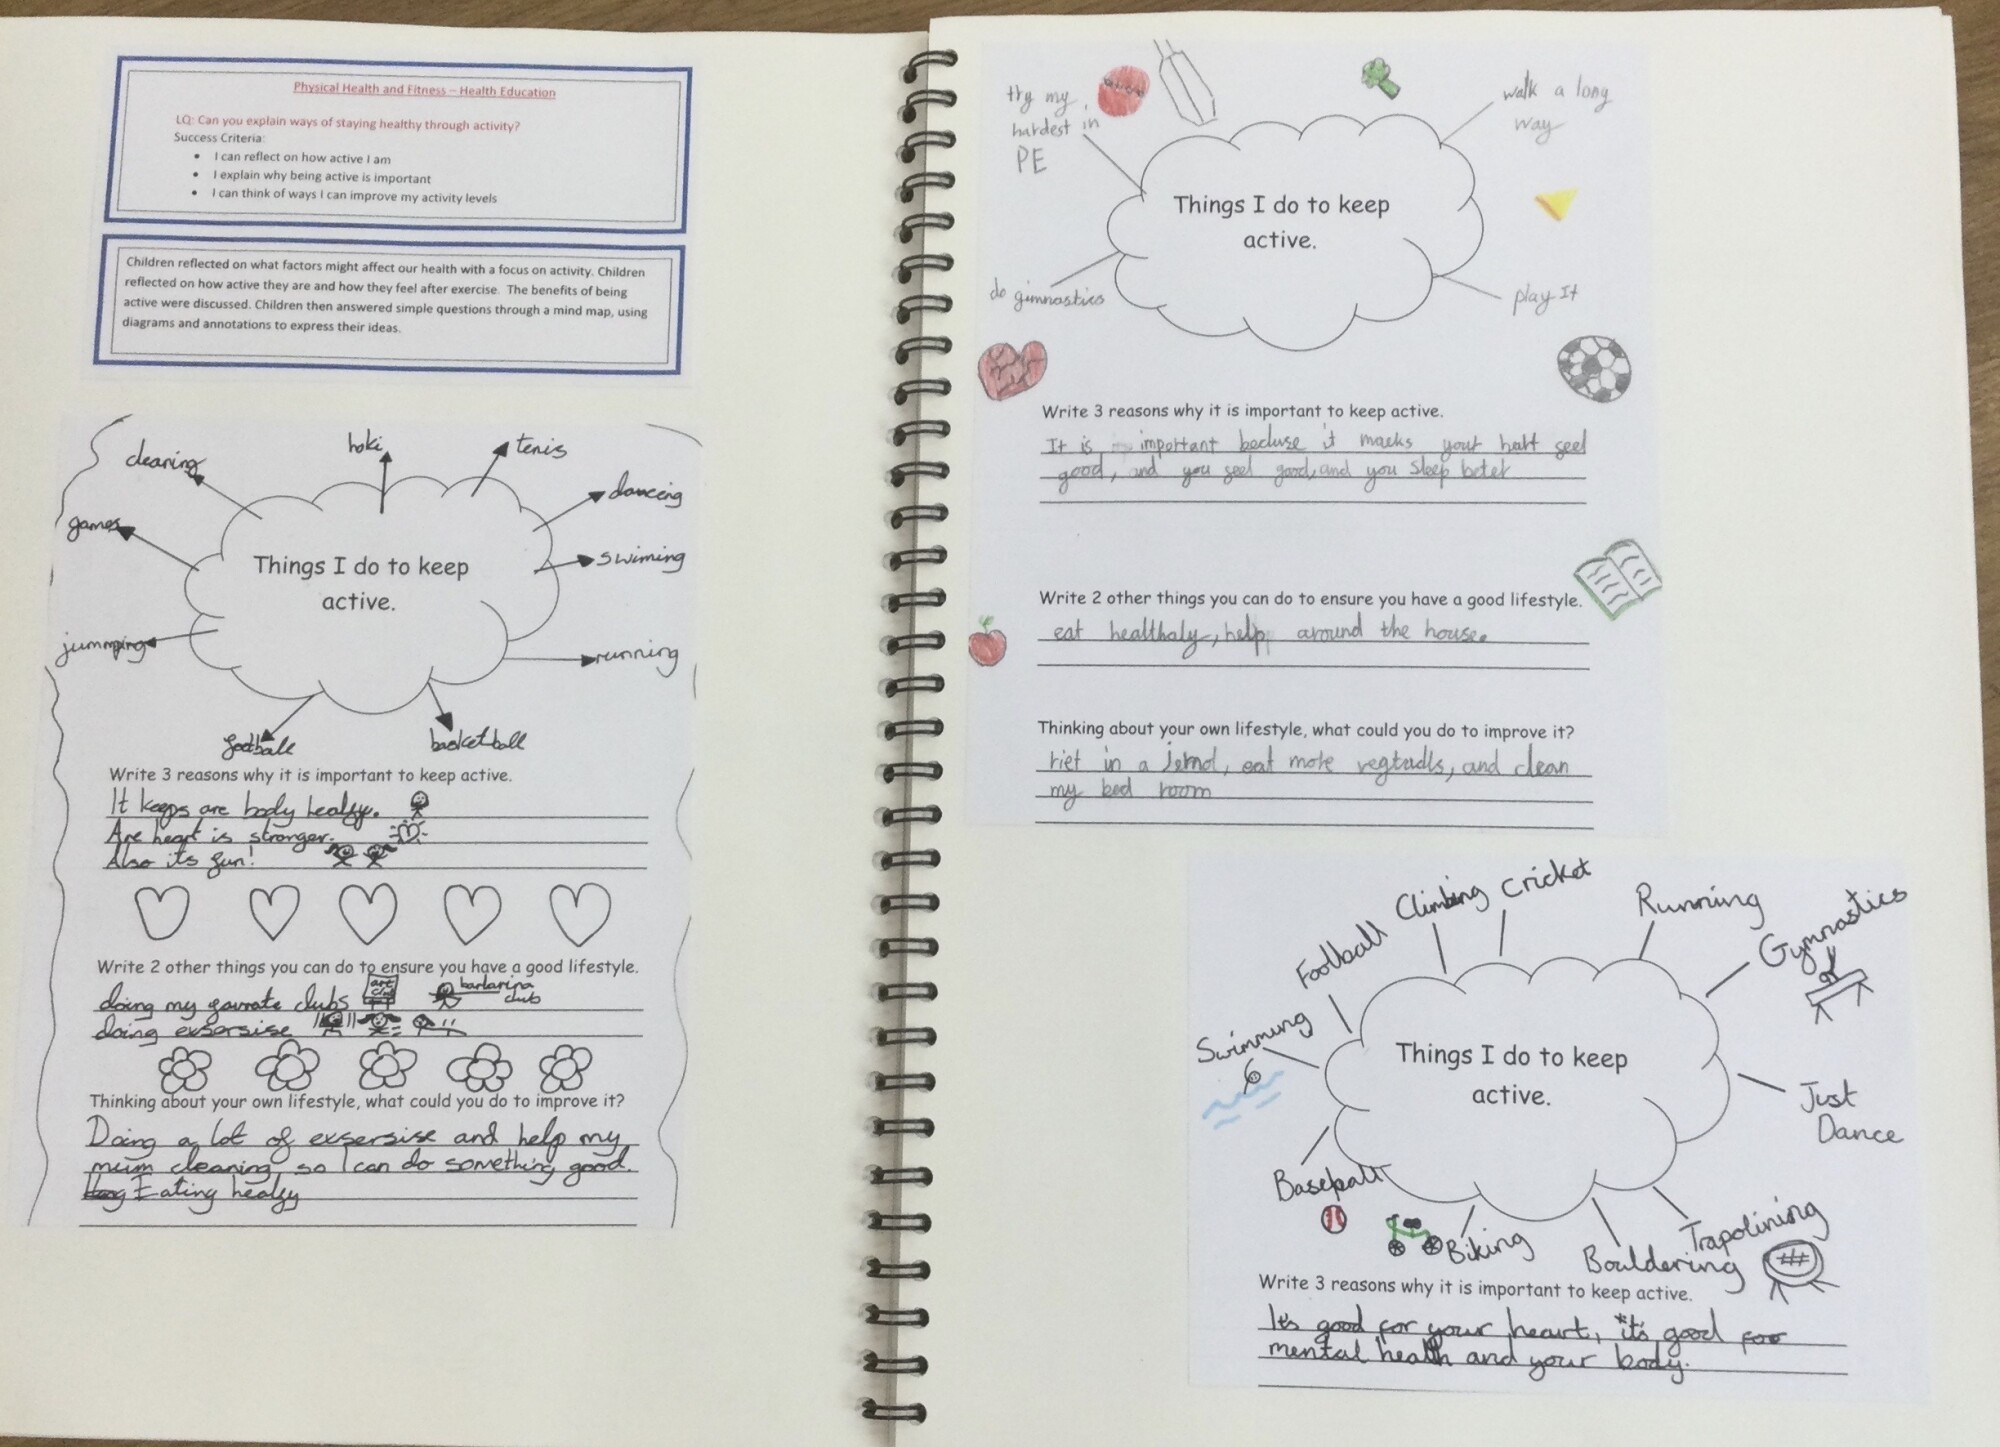 Physical Health and Fitness – Health Education
LQ: Can you explain ways of staying healthy through activity?
Success Criteria:
• I can reflect on how active I am
• I explain why being active is important
• I can think of ways I can improve my activity levels
Children reflected on what factors might affect our health with a focus on activity. Children
reflected on how active they are and how they feel after exercise. The benefits of being
active were discussed. Children then answered simple questions through a mind map, using
diagrams and annotations to express their ideas.
cleaning
hoki
tenis
dancing
games
swiming
Things I do to keep
active.
jumping
running
football
basketball
Write 3 reasons why it is important to keep active.
It keeps are body healfy.
Are heart is stronger.
Also its fun!
Write 2 other things you can do to ensure you have a good lifestyle.
doing my favrate clubs
art club
barlarina
club
doing exsersise
Thinking about your own lifestyle, what could you do to improve it?
Doing a lot of exsersise and help my
mum cleaning, so I can do something good.
Eating healfy
try my
hardest in
PE
walk a long
way
Things I do to keep
active.
do gimnastics
play It
Write 3 reasons why it is important to keep active.
It is important becluse it maeks your hart feel
good, and you feel good, and you sleep beter
Write 2 other things you can do to ensure you have a good lifestyle.
eat healthaly, help around the house.
Thinking about your own lifestyle, what could you do to improve it?
riet in a eat more vegtadls, and clean
my bed room
Swimming
Football
Climbing
Cricket
Running
Gymnastics
Things I do to keep
active.
Just
Dance
Baseball
Biking
Bouldering
Trapolining
Write 3 reasons why it is important to keep active.
It's good for your heart, *it's good for
mental health and your body.